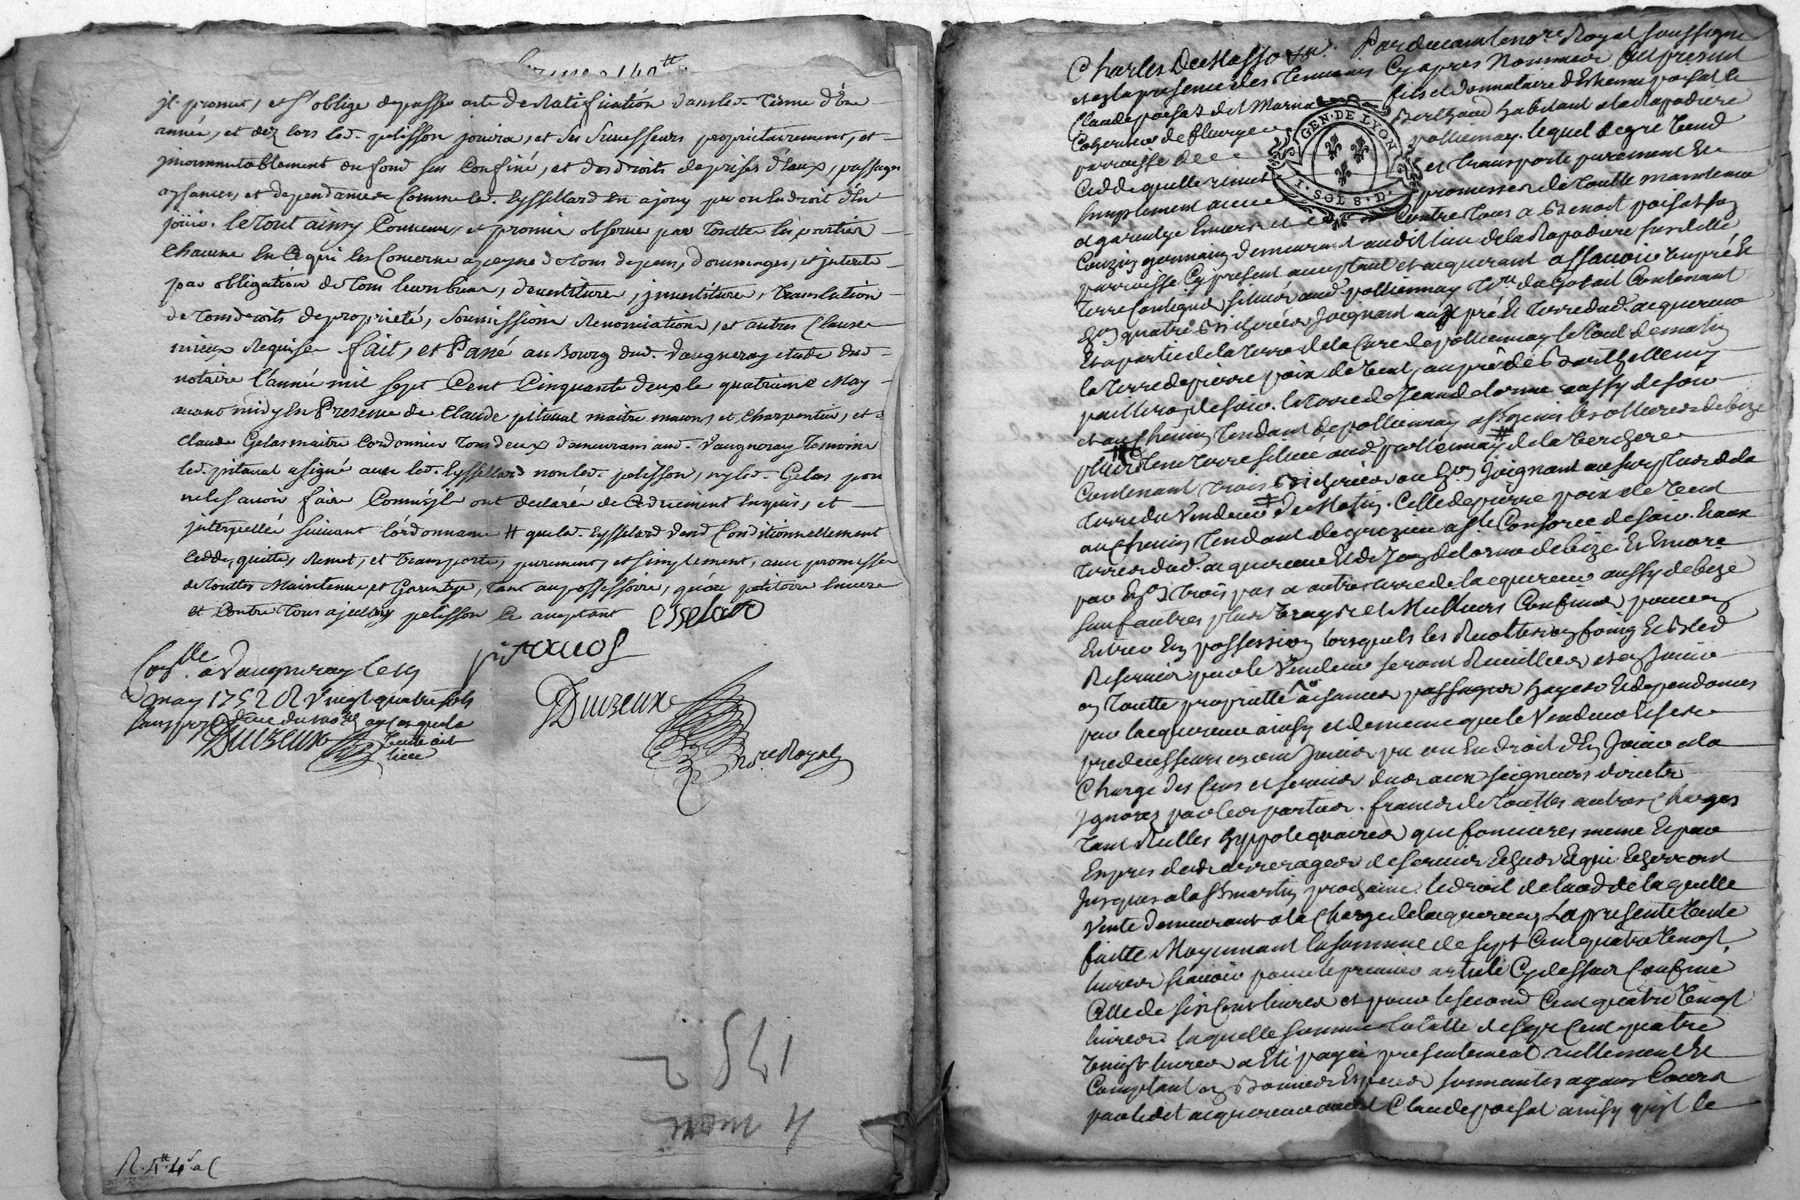 il promet, et s'oblige de passer acte de Ratification dans led. Terme d'une
année, et dez lors led. pelisson jouira, et ses Successeurs proprietairement, et
jncommutablement du fond sus Confiné, et des droits de prises d'Eaux, passages
aysances, et dependances Comme led. Eyssellard En a jouy pu ou du droit d'En
jouir. le Tout ainsy Convenu, et promis observer par Toutes les parties
Chacune En Ce qui les Concerne a peyne de tous depens, dommages, et jnterets
par obligation de Tous leurs biens, devestiture, jnvestiture, Translation
de Tous droits de proprieté, Soumissions Renonciation, et autres Clauses
mieux Requises fait, et Passé au Bourg dud. Vaugneray etude dud.
notaire l'année mil sept Cent Cinquante deux le quatrieme May
avant midy En Presence de Claude pitaval maitre masson, et Charpentier, et
Claude Gelas maitre Cordonnier Tous deux demeurans aud. Vaugneray Temoins
led. pitaval a signé avec led. Eyssellard non led. pelisson, ny led. Gelas pour
ne le savoir faire Comme jls ont declaré de Ce duement Enquis, et
jnterpellés suivant l'ordonnance # que led. Eyssellard Vend Conditionnellement
Cedde, quitte, Remet, et Transporte, purement, et simplement, avec promesse
de Touttes Maintenue, et Garentye, tant au possessoire, qu'au petitoire Envers
et Contre Tous aud. pelisson Ce acceptant
Esselard
pitaval
Conllé a Vaugneray le six
may 1752 R Vingt quatre sols
Duizeux
Duizeux
nore Royal
1752
4 may
R. 4tt 4s
Charles Par devant le nore Royal soussigné
et en la presence des Temoins Cy apres Nommes fut present
Claude poisat de St Marna fils et donnataire d'Estienne poisat le
Catherine de fleurye Berthaud habitant a la Rapadiere
parroisse de pollionnay. lequel de gré Vend
Cedde quitte remet et transporte purement Et
Simplement avec promesses de toutte maintenue
GEN. DE LYON
I. SOL 8. D.
et garentye Envers et Contre tous a Benoit poisat son
Couzin germain demeurant audit lieu de la Rapadiere susditte
parroisse Cy present acceptant et acquerant assavoir Un pré Et
terre Contigus situés aud. pollionnay Contenant
En quatre bicherées Joignant au pré Et terre dud. acquereur
Et a partie de la terre de la Cure de pollionnay le tout de matin
la terre de pierre poix de Vent, au pré de Barthellemy
de soir. la terre de Jean delorme aussy de soir
et au Chemin tendant de pollionnay de bize
plus Une terre situé aud. pollionnay # de la Verchere
Contenant trois bicherées ou En. Joignant au surplus de la
terre du Vendeur de Matin. Celle de pierre poix de Vent
au Chemin tendant de grezieu a Ste Consorce de soir. Et aux
terres dud. acquereur Et de Jean delorme de bize Et Encore
par trois pas a autre terre de lacquereur aussy de bize
sauf autres plus Vrays et Meilleurs Confins, pour en
Entrer En possession lorsque les Recoltes en foing Et bled
Reservées par le Vendeur seront Recuillies et en Jouir
en toutte proprietté aisances passages hayes et dependances
par lacquereur ainsy et de meme que le Vendeur et ses
predecesseurs en ont Jouis pu ou Eu droit d'En Jouir a la
Charge des Cens et servis dues aux seigneurs directs
Jgnorés par les parties. francs de touttes autres Charges
tant Reelles hyppotequaires que foncieres meme Et par
Exprès desd. arrerages de servis Echus Et qui Echerront
Jusques a la St martin prochaine. le droit de laod de laquelle
Vente demeurant a la Charge de lacquereur. La presente Vente
faitte Moyennant la somme de sept Cent quatre Vingt
livres scavoir pour le premier article Cy dessus Confiné
Celle de six Cent livres et pour le second Cent quatre Vingt
livres. laquelle somme totalle de sept Cent quatre
Vingt livres a Eté payée presentement reellement Et
Comptant en Bonnes Especes sonnantes ayans Cours
par ledit acquereur audit Claude poisat ainsy qu'il le